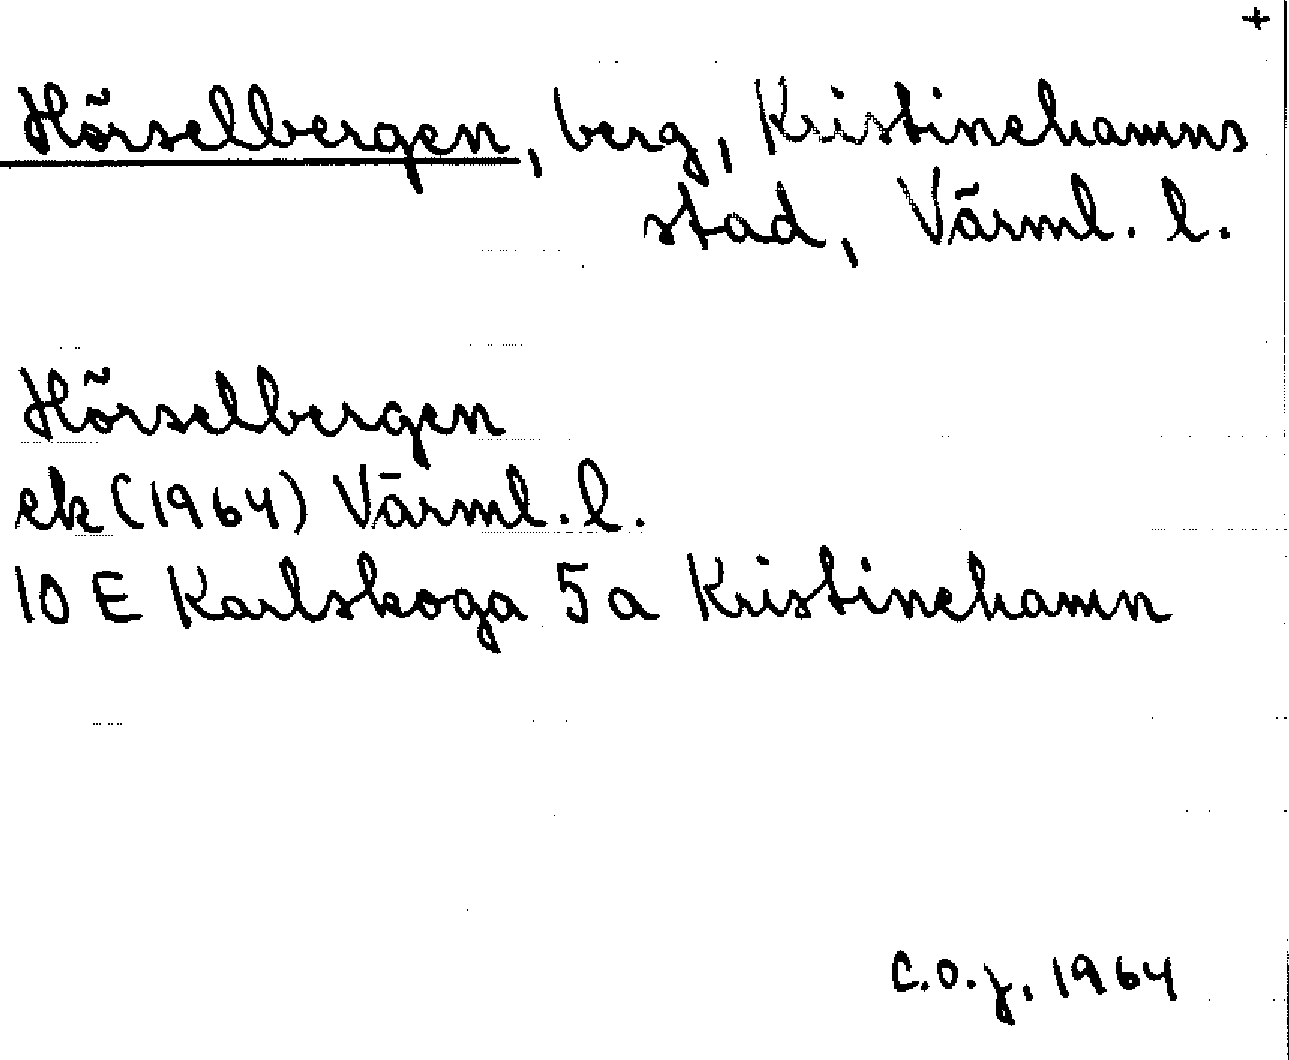 +
Hörselbergen, berg, Kristinehamns
stad, Värml. l.
Hörselbergen
ek (1964) Värml. l.
10 E Karlskoga 5a Kristinehamn
C.O.J. 1964